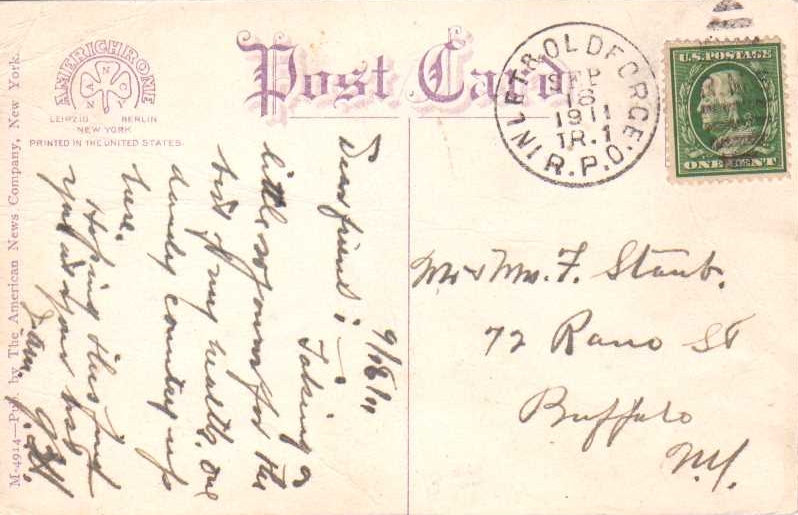 Post Card
AMERICHROME
T A N N C O
LEIPZIG BERLIN
NEW YORK
PRINTED IN THE UNITED STATES.
M-4914—Pub. by The American News Company, New York.
INLET & OLD FORGE.
SEP
18
1911
TR. 1
R.P.O.
U.S. POSTAGE
ONE CENT
9/18/11
Dear friend:
Taking a
little sojourn for the
best of my health, one
dandy country up
here.
Hoping this finds
you and your
I am,
Mr & Mrs. F. Staub.
72 Rano St
Buffalo
N.Y.